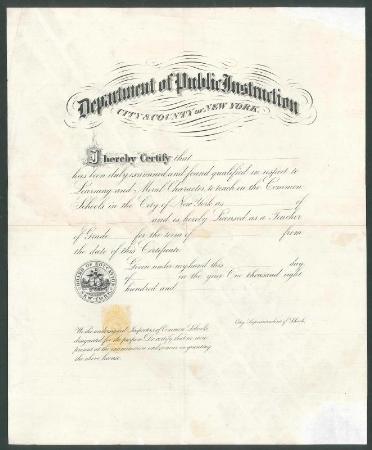 Department of Public Instruction
CITY & COUNTY OF NEW YORK.
I hereby Certify that
has been duly examined and found qualified in respect to
Learning and Moral Character, to teach in the Common
Schools in the City of New York as of
and is hereby Licensed as a Teacher
of Grade for the term of from
the date of this Certificate.
Given under my hand this day
in the year One thousand eight
hundred and
BOARD OF EDUCATION
NEW-YORK
City Superintendent of Schools.
We the undersigned Inspectors of Common Schools
designated for the purpose Do certify that we were
present at the examination and concur in granting
the above license.